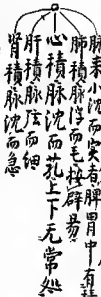 脉来小沈而实者脾胃中有积
肺積脉浮而毛按辟易
心積脉沈而芤上下无常処
肝積脉弦而細
腎積脉沈而急